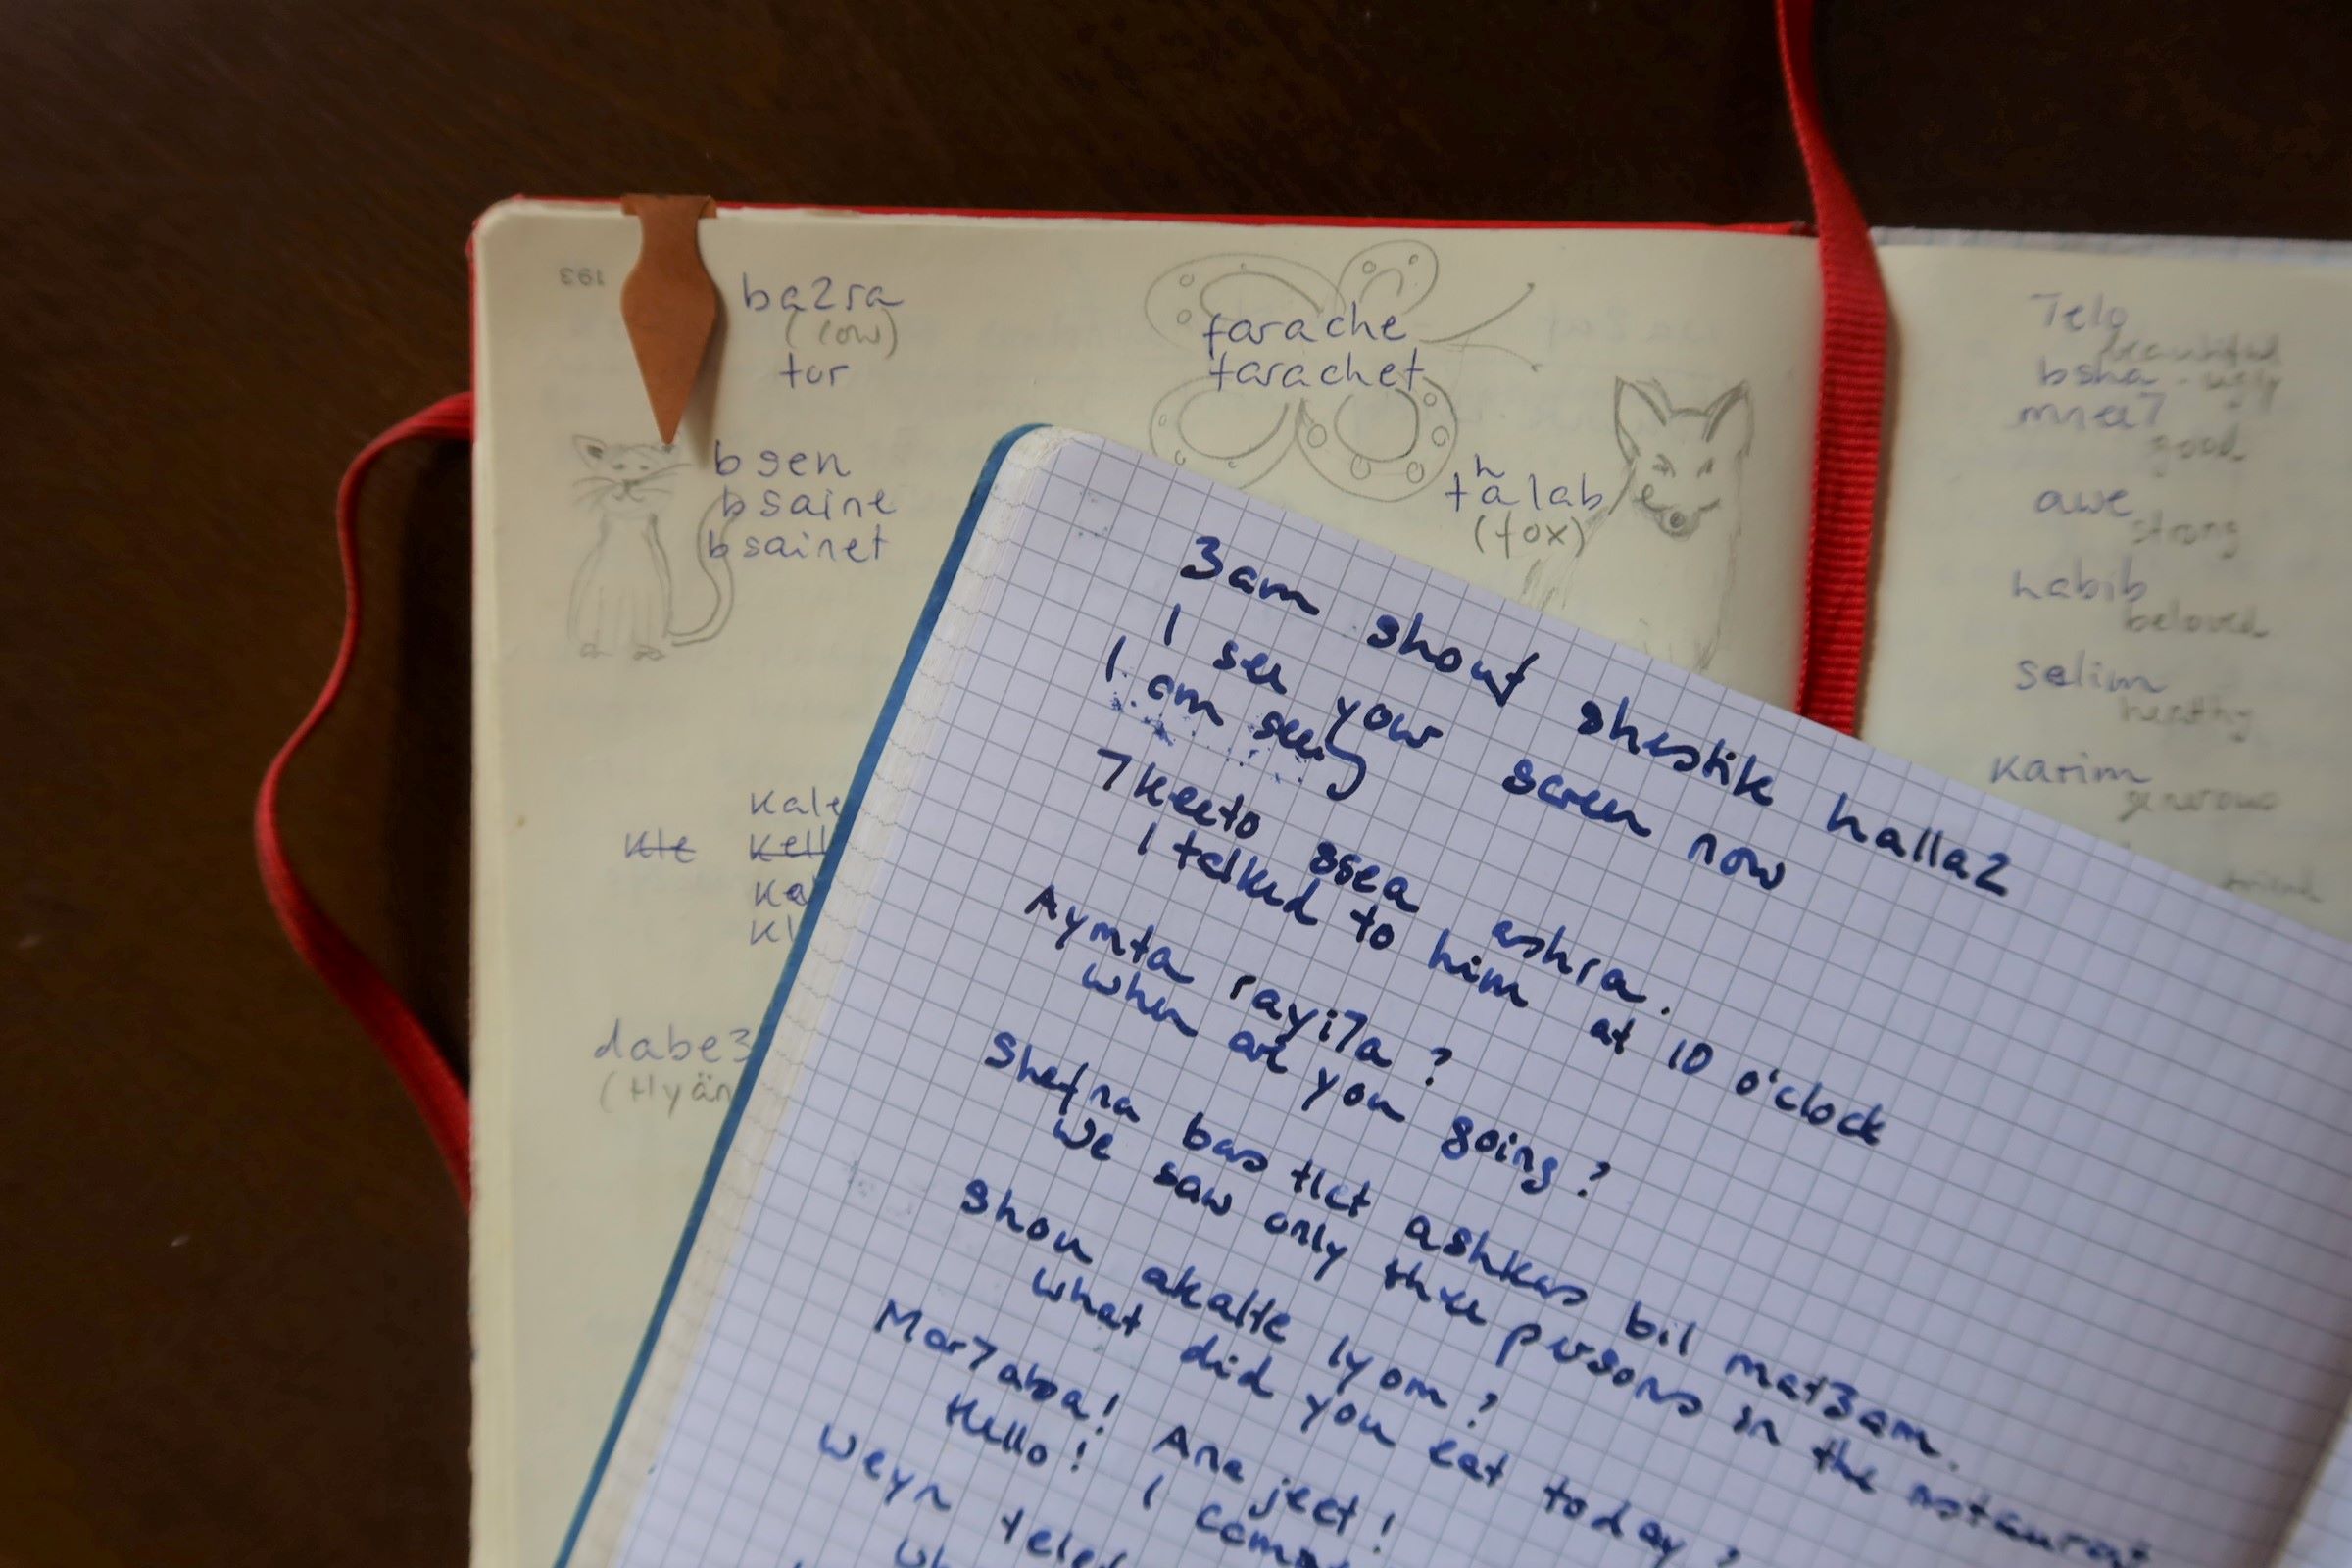 193
ba2ra
(cow)
tor
farache
farachet
bsen
bsaine
bsainet
thalab
(fox)
Kale
Kte Kell
Ka
Kl
dabe3
(Hyän
7elo
beautiful
bsha - ugly
mnea7
good
awe
strong
habib
beloved
selim
healthy
Karim
generous
friend
3am shouf shestik halla2
I see your screen now
I am seeing
7keeto ssea ashra.
I talked to him at 10 o'clock
Aymta rayi7a?
when are you going?
Shefna bas tlet ashkas bil mat3am.
We saw only three persons in the restaurant
Shou akalte lyom?
what did you eat today?
Mar7aba! Ana jeet!
Hello! I came
Weyn telef
wh